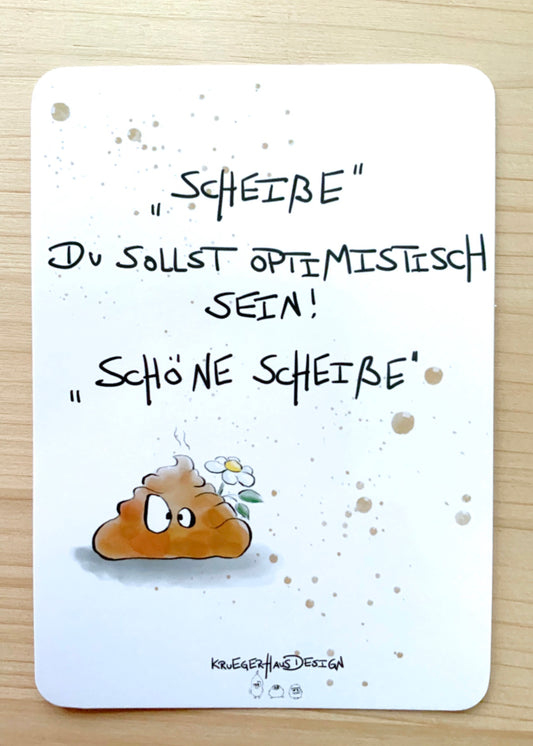 „SCHEIßE"
DU SOLLST OPTIMISTISCH
SEIN!
„SCHÖNE SCHEIßE"
KRUEGERHAUSDESIGN